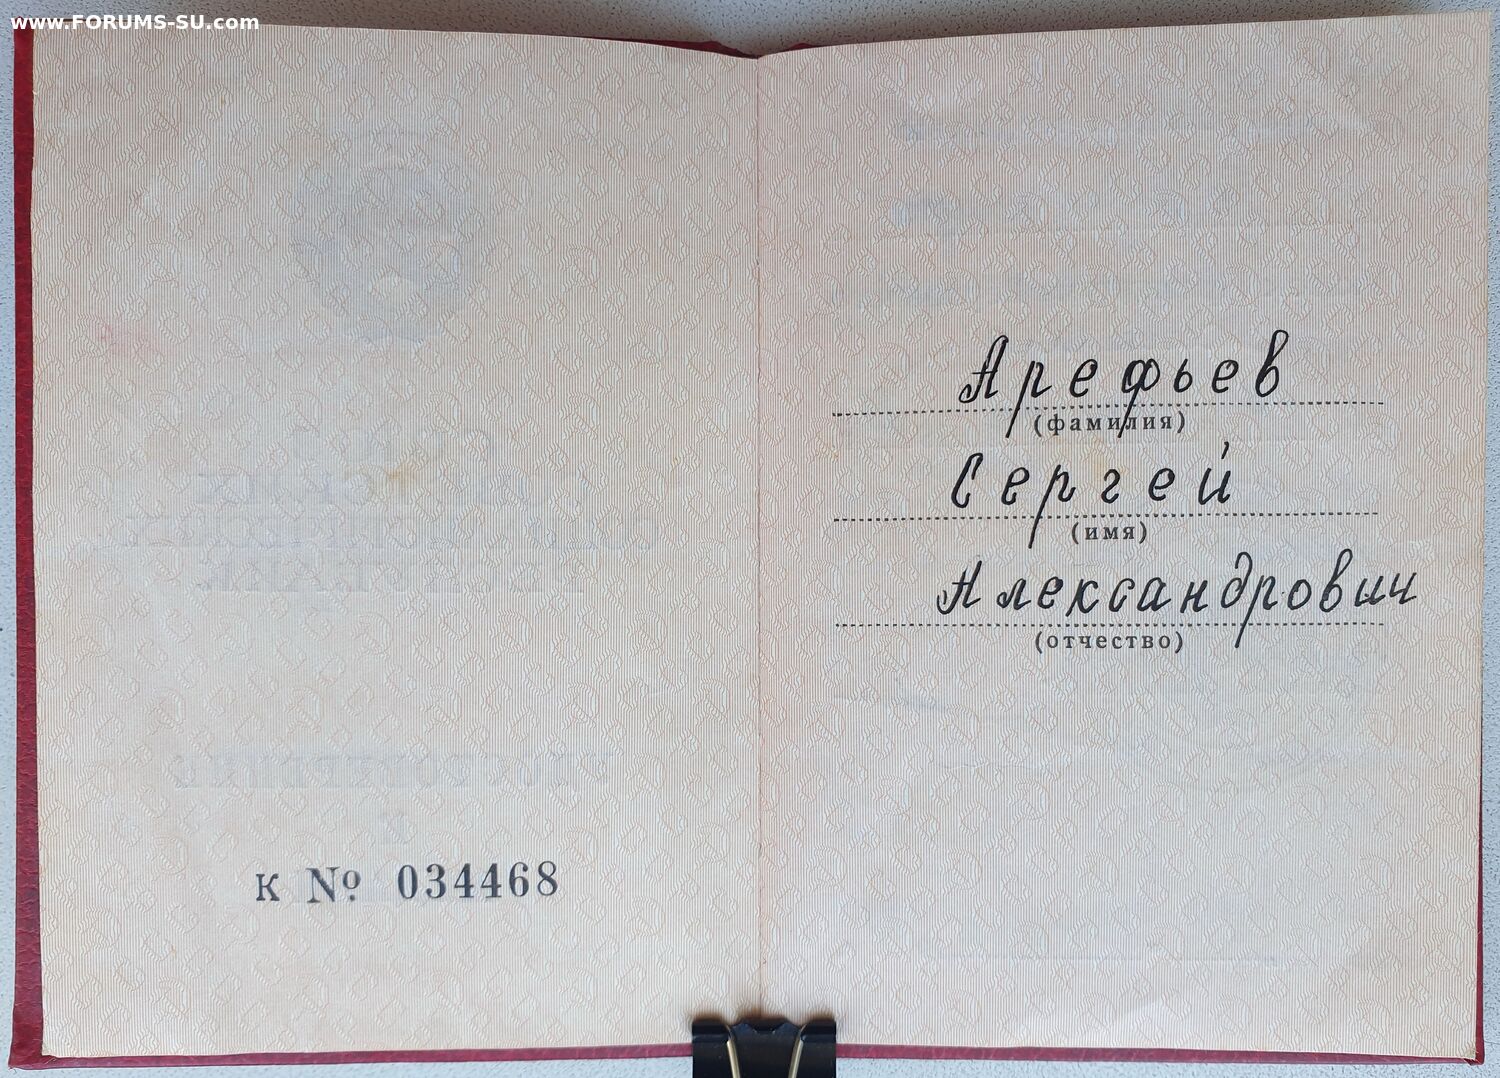 www.FORUMS-SU.com
К № 034468
Арефьев
(фамилия)
Сергей
(имя)
Александрович
(отчество)